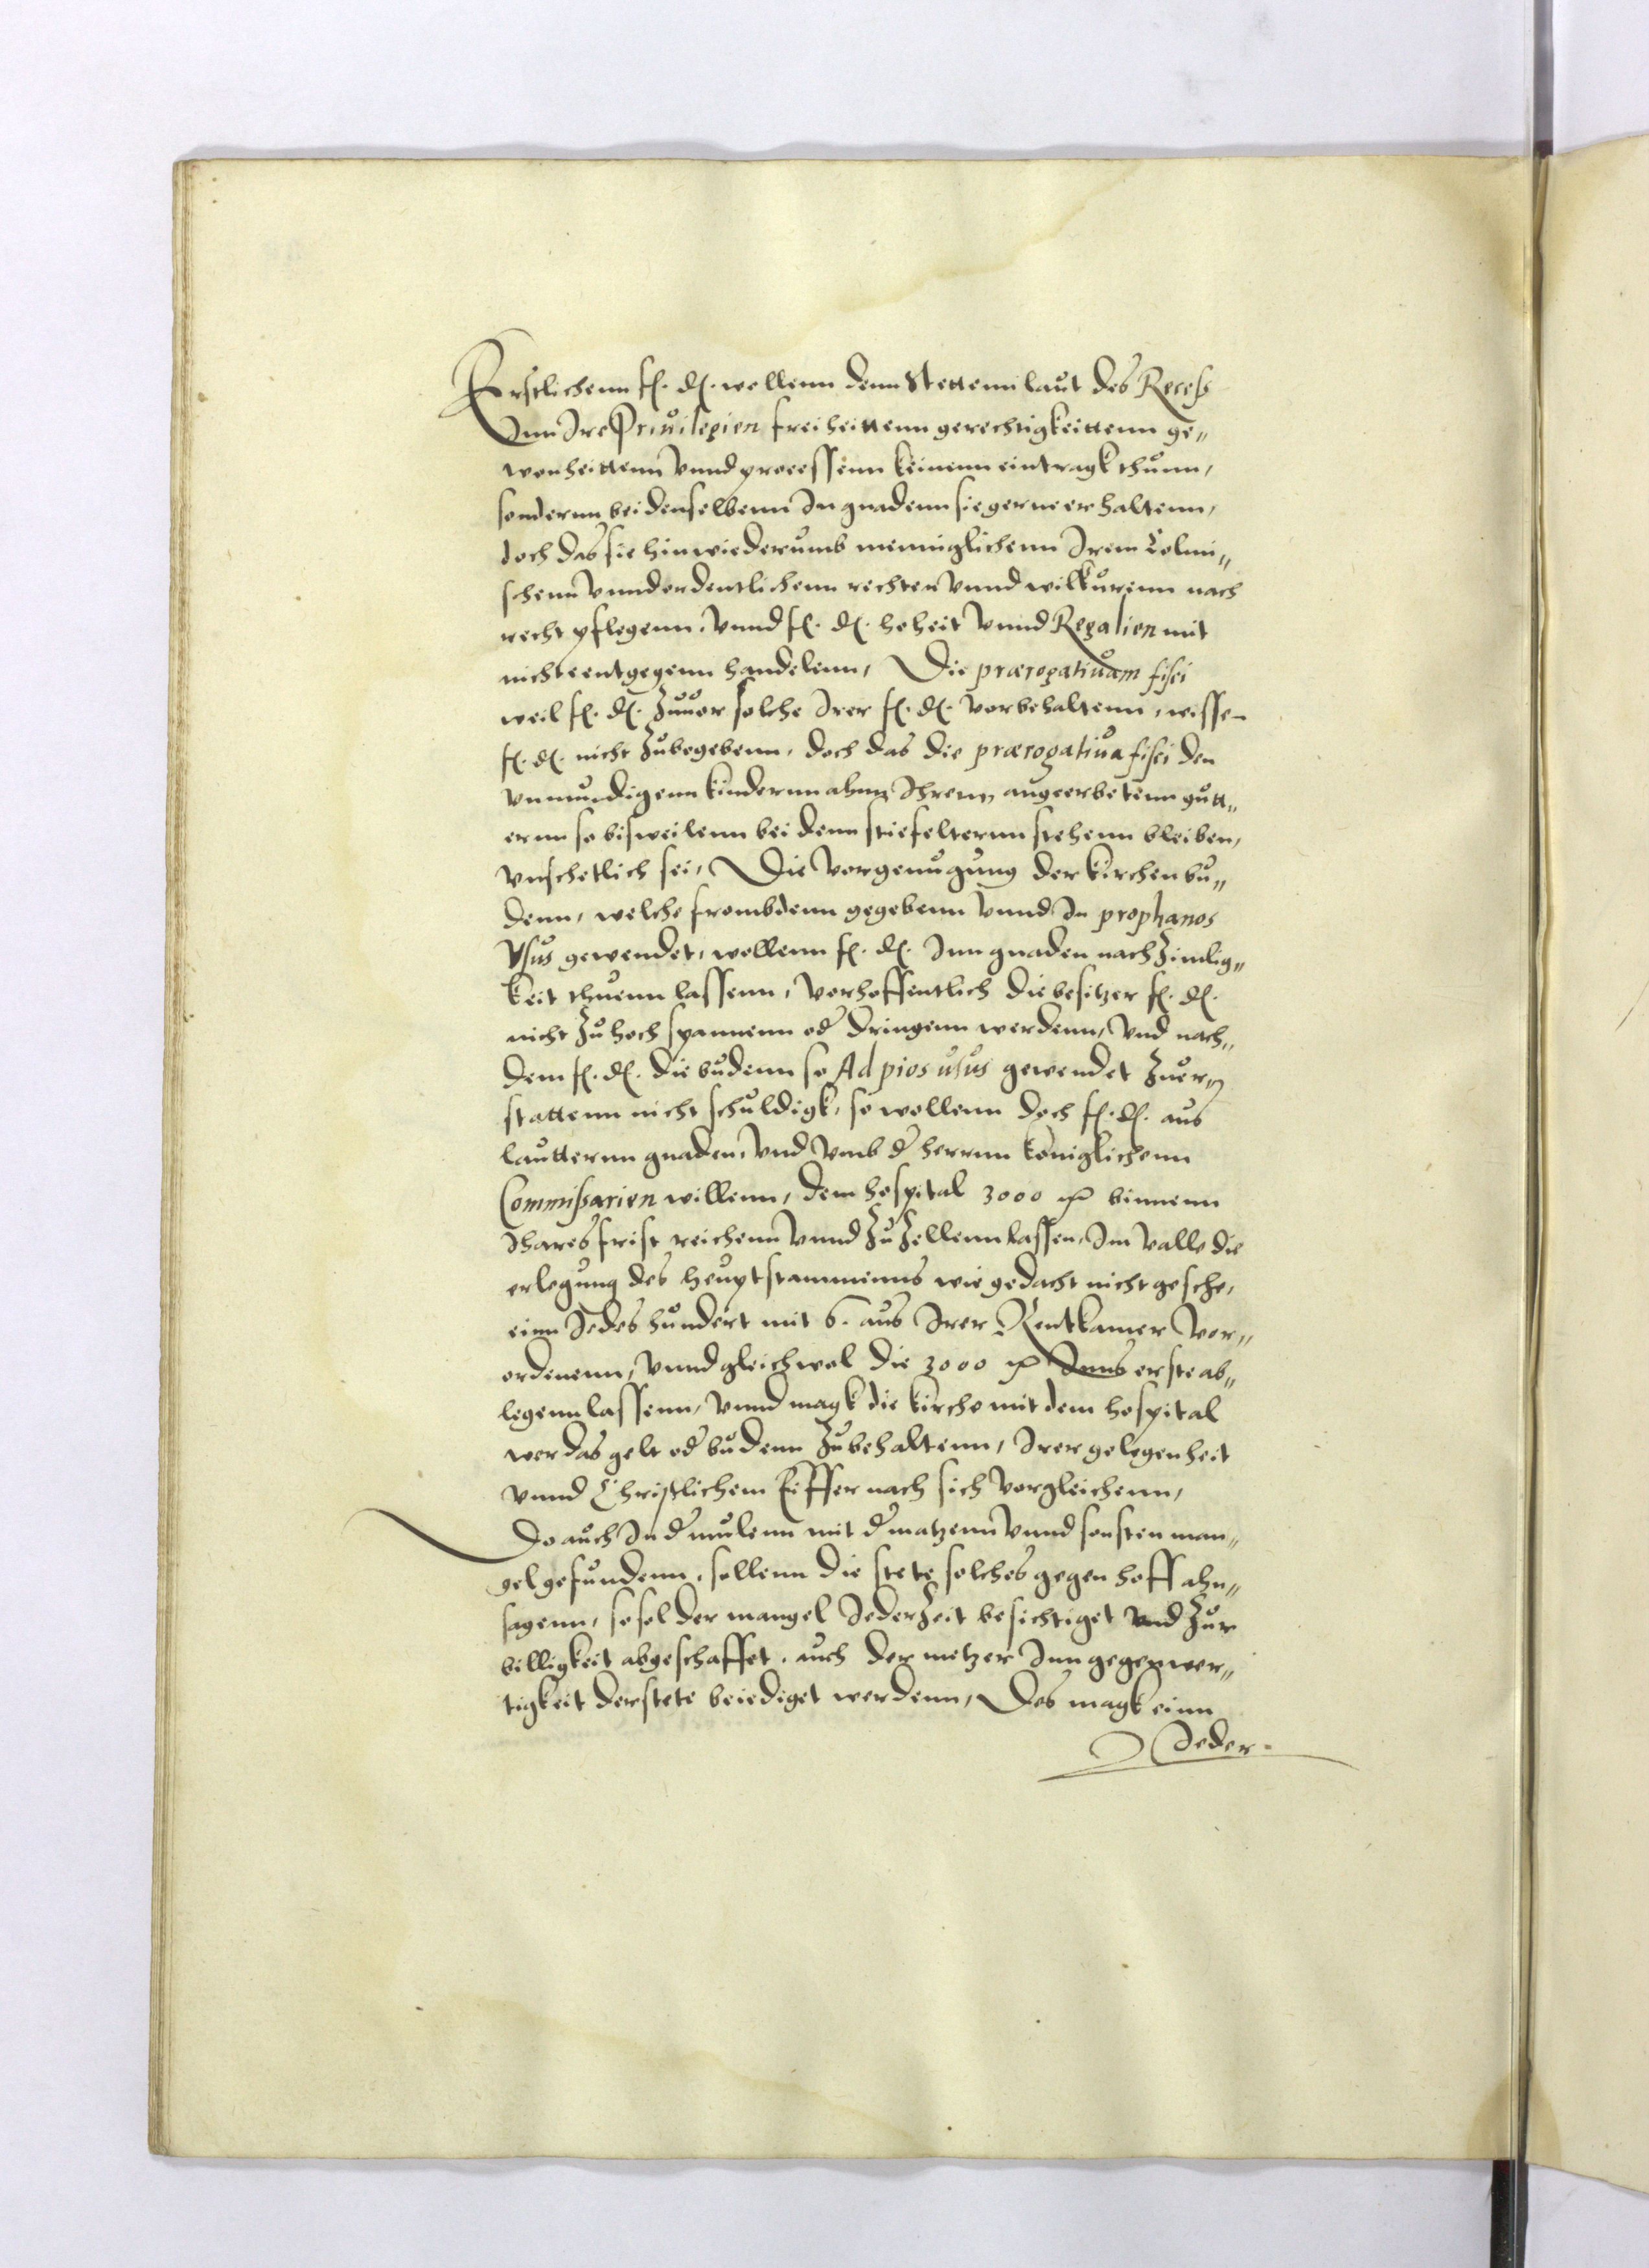 Erstlichenn f. d. wollenn denn Stettenn laut des Receß
Inn Ire Priuilegien freiheittenn gerechtigkeittenn ge„
wonheittenn vnnd processenn keinenn eintragk thunn,
sonderenn bei denselbenn In gnadenn sie gerne erhaltenn,
doch das sie hinwiederumb menniglichenn Irem Colmi„
schenn vnnd ordentlichenn rechten vnnd wilkurenn nach
recht pflegenn, vnnd f. d. hoheit vnnd Regalien mit
nichte entgegenn handelenn, Die prærogatiuam fisci
weil f. d. zuuor solche Irer f. d. vorbehaltenn, wissen
f. d. nicht zubegebenn, doch das die prærogatiua fisci den
vnmundigenn kinderenn ahnn Ihrenn angeerbetenn gutt„
erenn so bisweilenn bei denn stiefelterenn stehenn bleiben,
vnschetlich sei, Die vorgenugung der kirchen bu„
denn, welche frombdenn gegebenn vnnd In prophanos
Vsus gewendet, wollenn f. d. Inn gnaden nach zimlig„
keit thuenn lassenn, vorhoffentlich die besitzer f. d.
nicht zu hoch spannenn oder dringenn werdenn, vnd nach„
dem f. d. die budenn so Ad pios usus gewendet zuer„
stattenn nicht schuldigk, so wollenn doch f. d. aus
lautterenn gnaden, vnd vmb der herrnn königlichenn
Commißarien willenn, dem hospital 3000 mk binnenn
Jharesfrist reichenn vnnd zuzellenn lassen, Im valle die
erlegung des heuptstammenns wie gedacht nicht geschehe,
einn Jedes hundert mit 6. aus Irer Rentkamer vor„
ordenenn, vnnd gleichwol die 3000 mk Inns erste ab„
legenn lassenn, vnnd magk die kirche mit dem hospital
wer das gelt oder budenn zubehaltenn, Irer gelegenheit
vnnd Christlichem Eiffer nach sich vorgleichenn,
Do auch In der mulenn mit der matzenn vnnd sonsten man„
gel gefundenn, sollenn die stete solches gegen hoff ahn„
sagenn, so sol der mangel Jederzeit besichtiget vnd zur
billigkeit abgeschaffet, auch der metzer Inn gegenwer„
tigkeit der stete beiediget werdenn, Des magk einn
Jeder